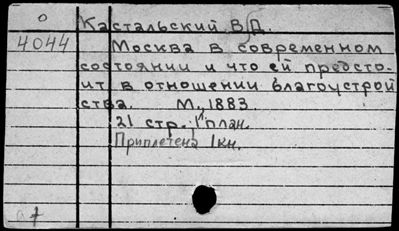 о
Кастальский В.Д.
4044
Москва в современном
состоянии и что ей предсто-
ит в отношении благоустрой
ства. М., 1883.
21 стр., 1 план.
Приплетена 1 кн.